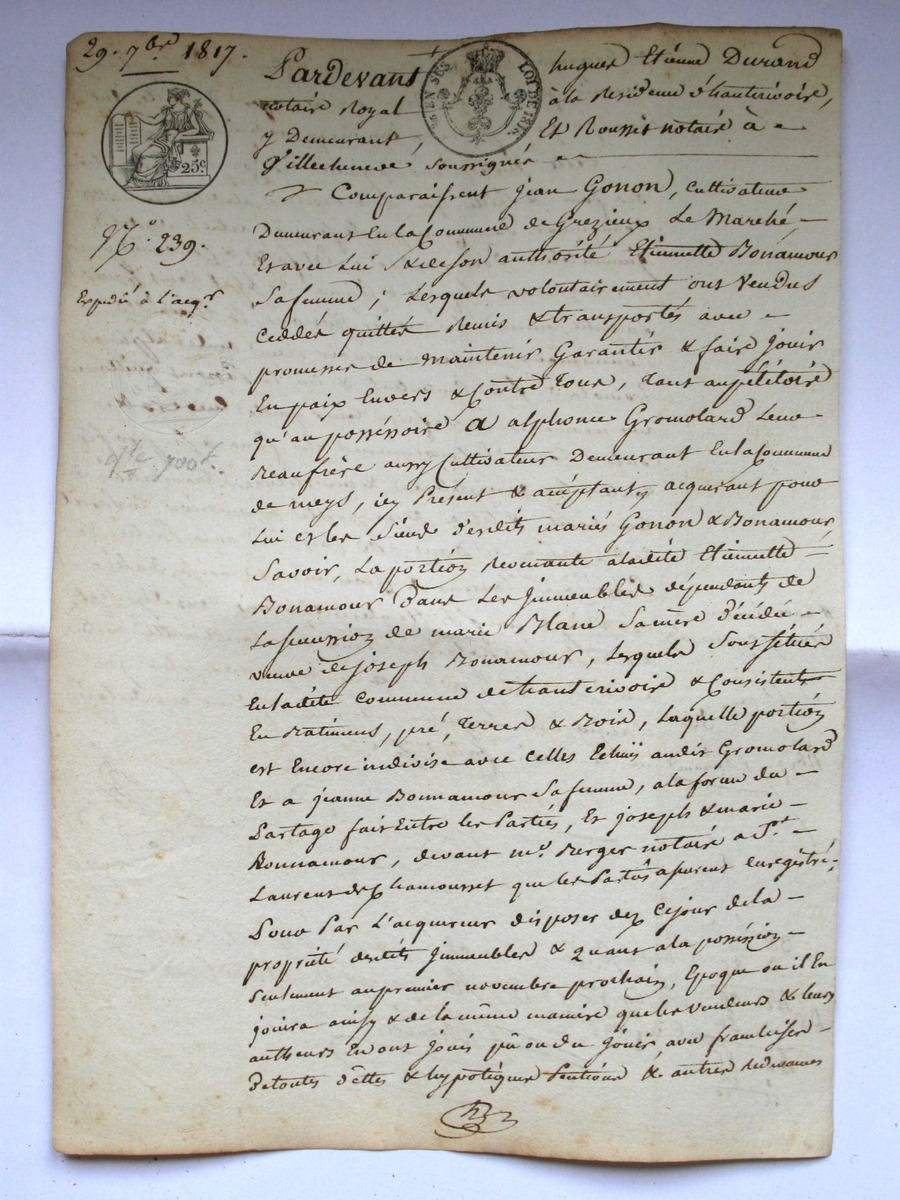 29. 7bre 1817.
Pardevant hugues Etiénne Durand
notaire Royal à la Residence d'hauterivoire,
y Demeurant, Et Roussit notaire à
Villechenève soussignés
EN SUS LOI DE 1816.
25c.
No. 239.
Expedié à l'acqr
Comparaissent jean Gonon, Cultivateur
Demeurant En la Commune de Grezieux Le Marché
Et avec Lui & de son authorité Etiennette Bonamour
Sa femme; Lesquels volontairement ont Vendus
Ceddés quittés Remis & transportés avec
promesse de Maintenir Garantir & faire jouir
En paix Envers & Contre Tous, Tant au pétitoire
qu'au possessoire a alphonce Gromolard Leur
Beaufrère aussy Cultivateur Demeurant En la Commune
de meys, icy Présent & acceptant, acquerant pour
Lui et les Siens desdits mariés Gonon & Bonamour
Savoir, La portion Revenante a ladite Etiennette
Bonamour Dans Les Jmmeubles dépendants de
La succession de marie Blanc Sa mère Décédée
veuve de joseph Bonamour, Lesquels Sont Situés
En ladite Commune de hauterivoire & Consistent
En Bâtimens, pré, Terres & Bois, Laquelle portion
est Encore indivise avec Celles Echuës audit Gromolard
Et a jeanne Bonnamour Sa femme, a la forme du
Partage fait Entre les Parties, Et joseph & marie
Bonnamour, devant me. Berger notaire a St.
Laurent de Chamousset que les Parties assurent enregistré,
Pour Par L'acquereur disposer dez Cejour de la
propriété desdits Jmmeubles & Quant a la possession
Seulement au premier novembre prochain, Epoque ou il En
jouira ainsy & de la même maniere que les Vendeurs & leurs
autheurs En ont jouis pû ou du jouir avec franchises
De toutes dettes & hypotéques Pensions & autres Redevances